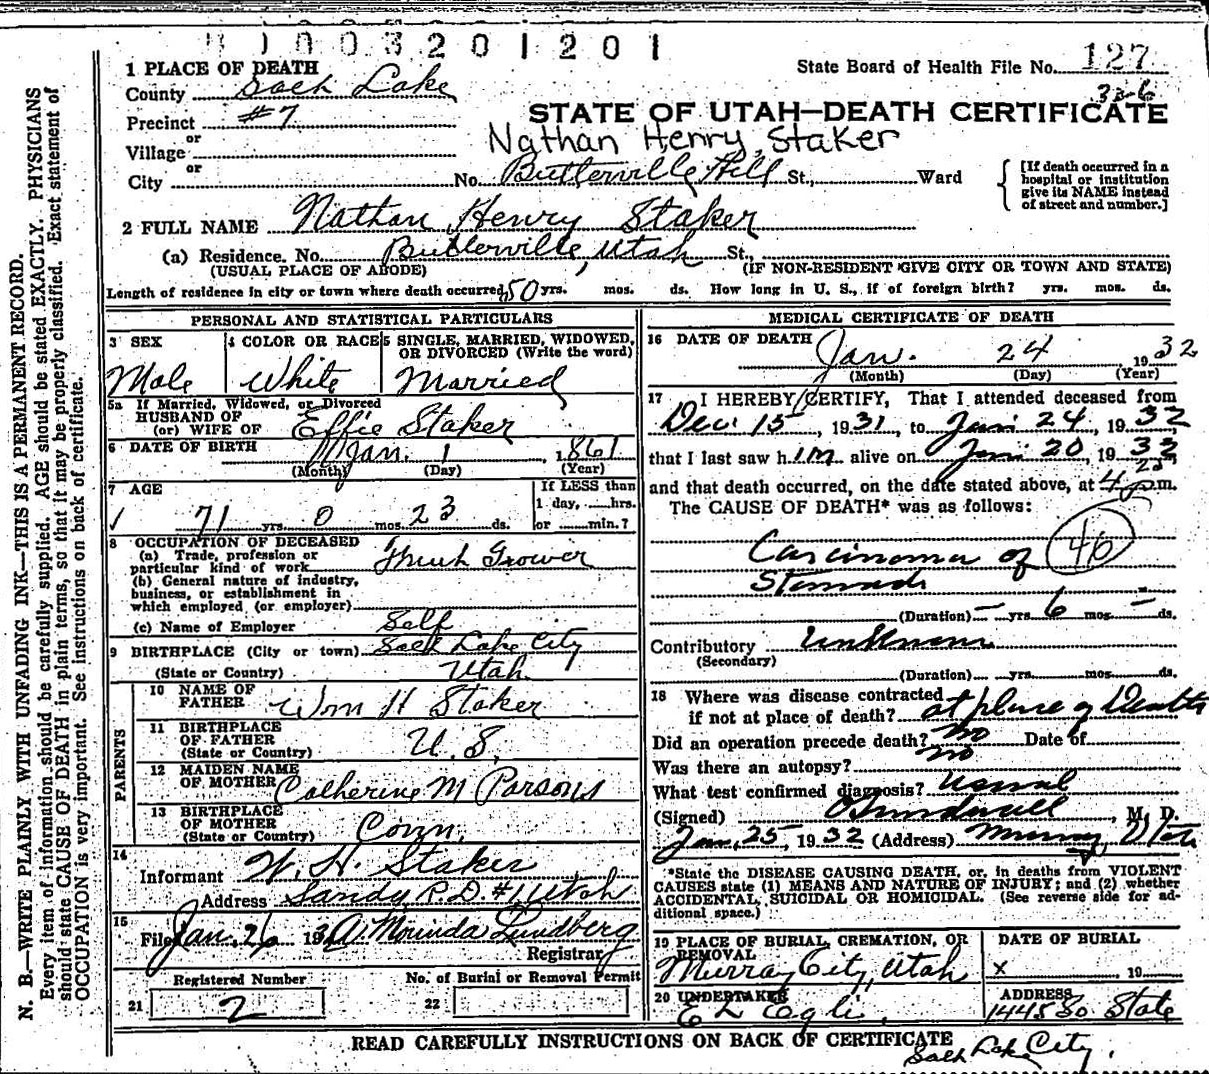 003201201
1 PLACE OF DEATH
State Board of Health File No. 127
County Salt Lake
33-6
STATE OF UTAH—DEATH CERTIFICATE
Precinct #7
or
Nathan Henry Staker
Village
or
City No. Butlerville Hill St., Ward
[If death occurred in a hospital or institution give its NAME instead of street and number.]
2 FULL NAME Nathan Henry Staker
(a) Residence. No. Butlerville, Utah St.,
(USUAL PLACE OF ABODE) (IF NON-RESIDENT GIVE CITY OR TOWN AND STATE)
Length of residence in city or town where death occurred, 50 yrs. mos. ds. How long in U. S., if of foreign birth? yrs. mos. ds.
PERSONAL AND STATISTICAL PARTICULARS
3 SEX
Male
4 COLOR OR RACE
White
5 SINGLE, MARRIED, WIDOWED, OR DIVORCED (Write the word)
Married
5a If Married, Widowed, or Divorced
HUSBAND OF
(or) WIFE OF Effie Staker
6 DATE OF BIRTH Jan. 1 1861
(Month) (Day) (Year)
7 AGE
71 yrs. 0 mos. 23 ds.
If LESS than
1 day, ......hrs.
or ......min.?
8 OCCUPATION OF DECEASED
(a) Trade, profession or
particular kind of work Grower
(b) General nature of industry,
business, or establishment in
which employed (or employer)
(c) Name of Employer Self
9 BIRTHPLACE (City or town) Salt Lake City
(State or Country) Utah
PARENTS
10 NAME OF
FATHER Wm H Staker
11 BIRTHPLACE
OF FATHER
(State or Country) U. S.
12 MAIDEN NAME
OF MOTHER Catherine M Parsons
13 BIRTHPLACE
OF MOTHER
(State or Country) Conn.
14
Informant W. H. Staker
Address Sandy R.D. #1 Utah
15
Filed Jan. 26 193 A. Morinda Lundberg
Registrar
Registered Number
21 2
No. of Burial or Removal Permit
22
MEDICAL CERTIFICATE OF DEATH
16 DATE OF DEATH Jan. 24 1932
(Month) (Day) (Year)
17 I HEREBY CERTIFY, That I attended deceased from
Dec. 15, 1931, to Jan. 24, 1932
that I last saw him alive on Jan. 20, 1932,
and that death occurred, on the date stated above, at 4 p.m.
The CAUSE OF DEATH* was as follows:
Carcinoma of 46
Stomach
(Duration) — yrs. 6 mos. — ds.
Contributory Unknown
(Secondary)
(Duration) yrs. mos. ds.
18 Where was disease contracted
if not at place of death? at place of Death
Did an operation precede death? no Date of
Was there an autopsy? no
What test confirmed diagnosis? usual
(Signed) , M. D.
Jan. 25, 1932 (Address) Murray, Utah
*State the DISEASE CAUSING DEATH, or, in deaths from VIOLENT
CAUSES state (1) MEANS AND NATURE OF INJURY; and (2) whether
ACCIDENTAL, SUICIDAL OR HOMICIDAL. (See reverse side for ad-
ditional space.)
19 PLACE OF BURIAL, CREMATION, OR
REMOVAL
Murray City, Utah
DATE OF BURIAL
x , 19
20 UNDERTAKER
E L Egli
ADDRESS
1445 So. State
Salt Lake City.
READ CAREFULLY INSTRUCTIONS ON BACK OF CERTIFICATE
N. B.—WRITE PLAINLY WITH UNFADING INK—THIS IS A PERMANENT RECORD.
Every item of information should be carefully supplied. AGE should be stated EXACTLY. PHYSICIANS
should state CAUSE OF DEATH in plain terms, so that it may be properly classified. Exact statement of
OCCUPATION is very important. See instructions on back of certificate.